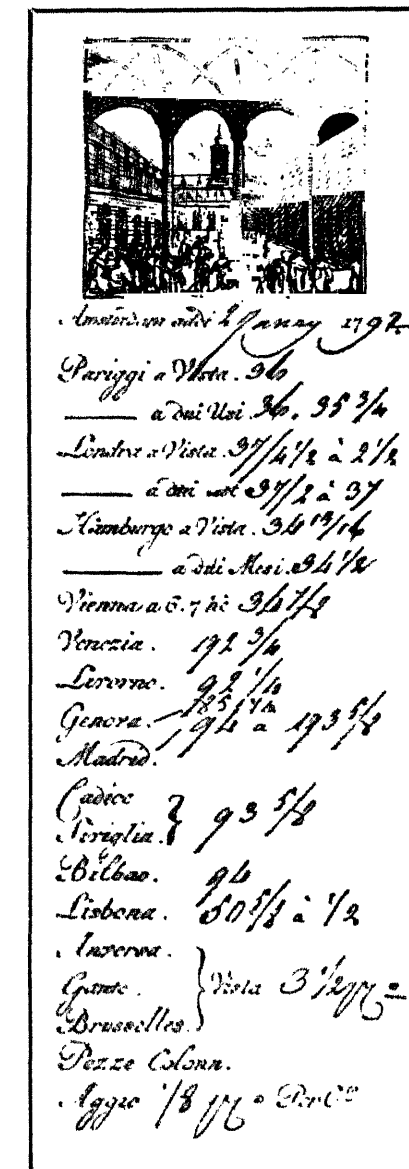 Amsterdam addi 2 Janny 1792
Pariggi a Vista. 36
—— a dui Usi 36. 35 3/4
Londra a Vista. 37/4 1/2 à 2 1/2
—— a dui usi 37/2 à 37
Hamburgo a Vista. 34 13/16
—— a dui Mesi. 34 1/2
Vienna a 6. 7 34 7/8
Venezia. 92 3/4
Livorno. 92 1/4
Genova. 85 1/4
Madrid. 94 a 93 5/8
Cadice
Siviglia. } 93 5/8
Bilbao. 94
Lisbona. 50 5/8 à 1/2
Anversa.
Gante. } Vista 3 1/2
Brusselles.
Pezze Colonn.
Aggio 1/8 Per Co